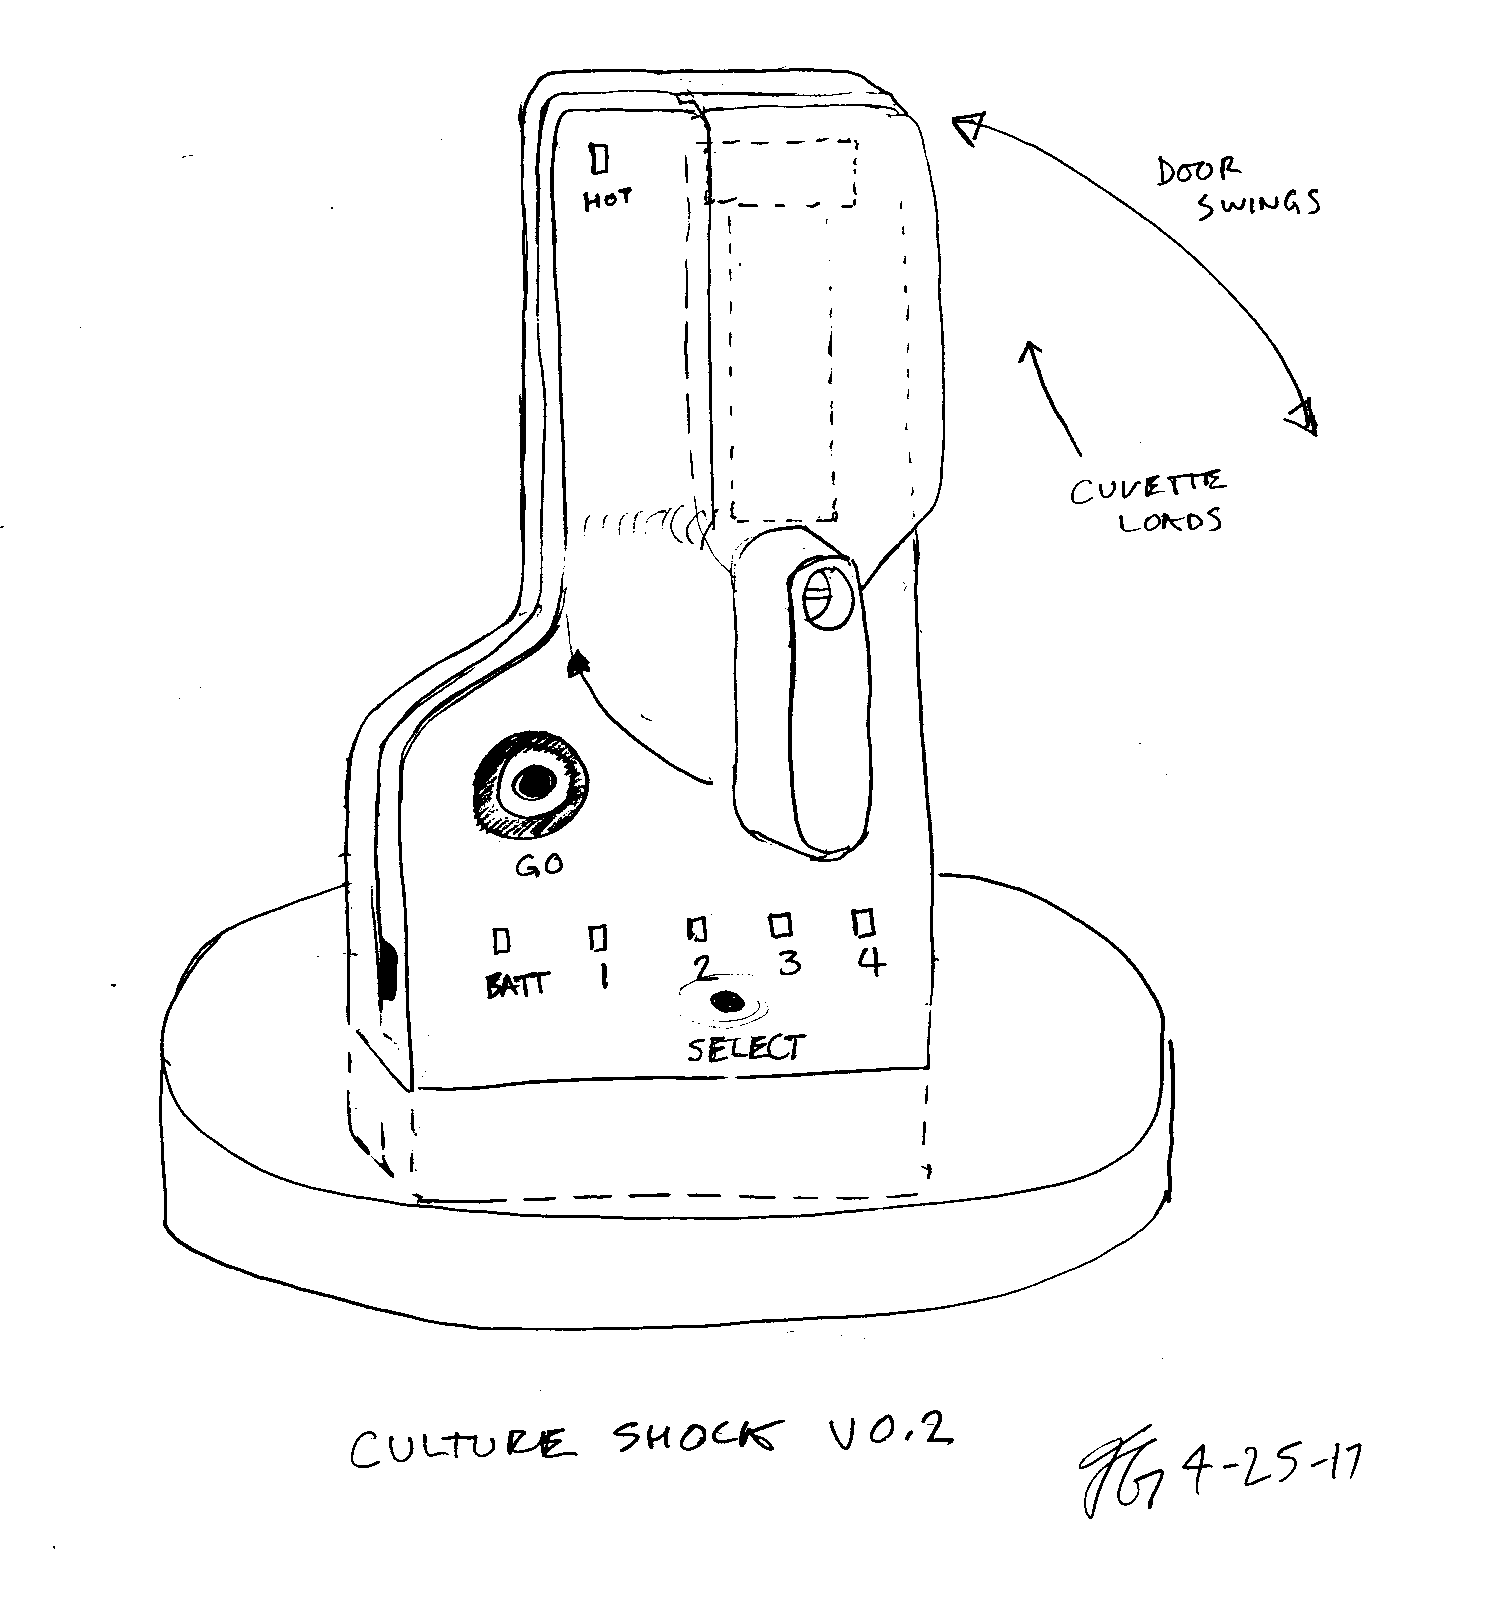 HOT
DOOR
SWINGS
CUVETTE
LOADS
GO
BATT 1 2 3 4
SELECT
CULTURE SHOCK V0.2
4-25-17